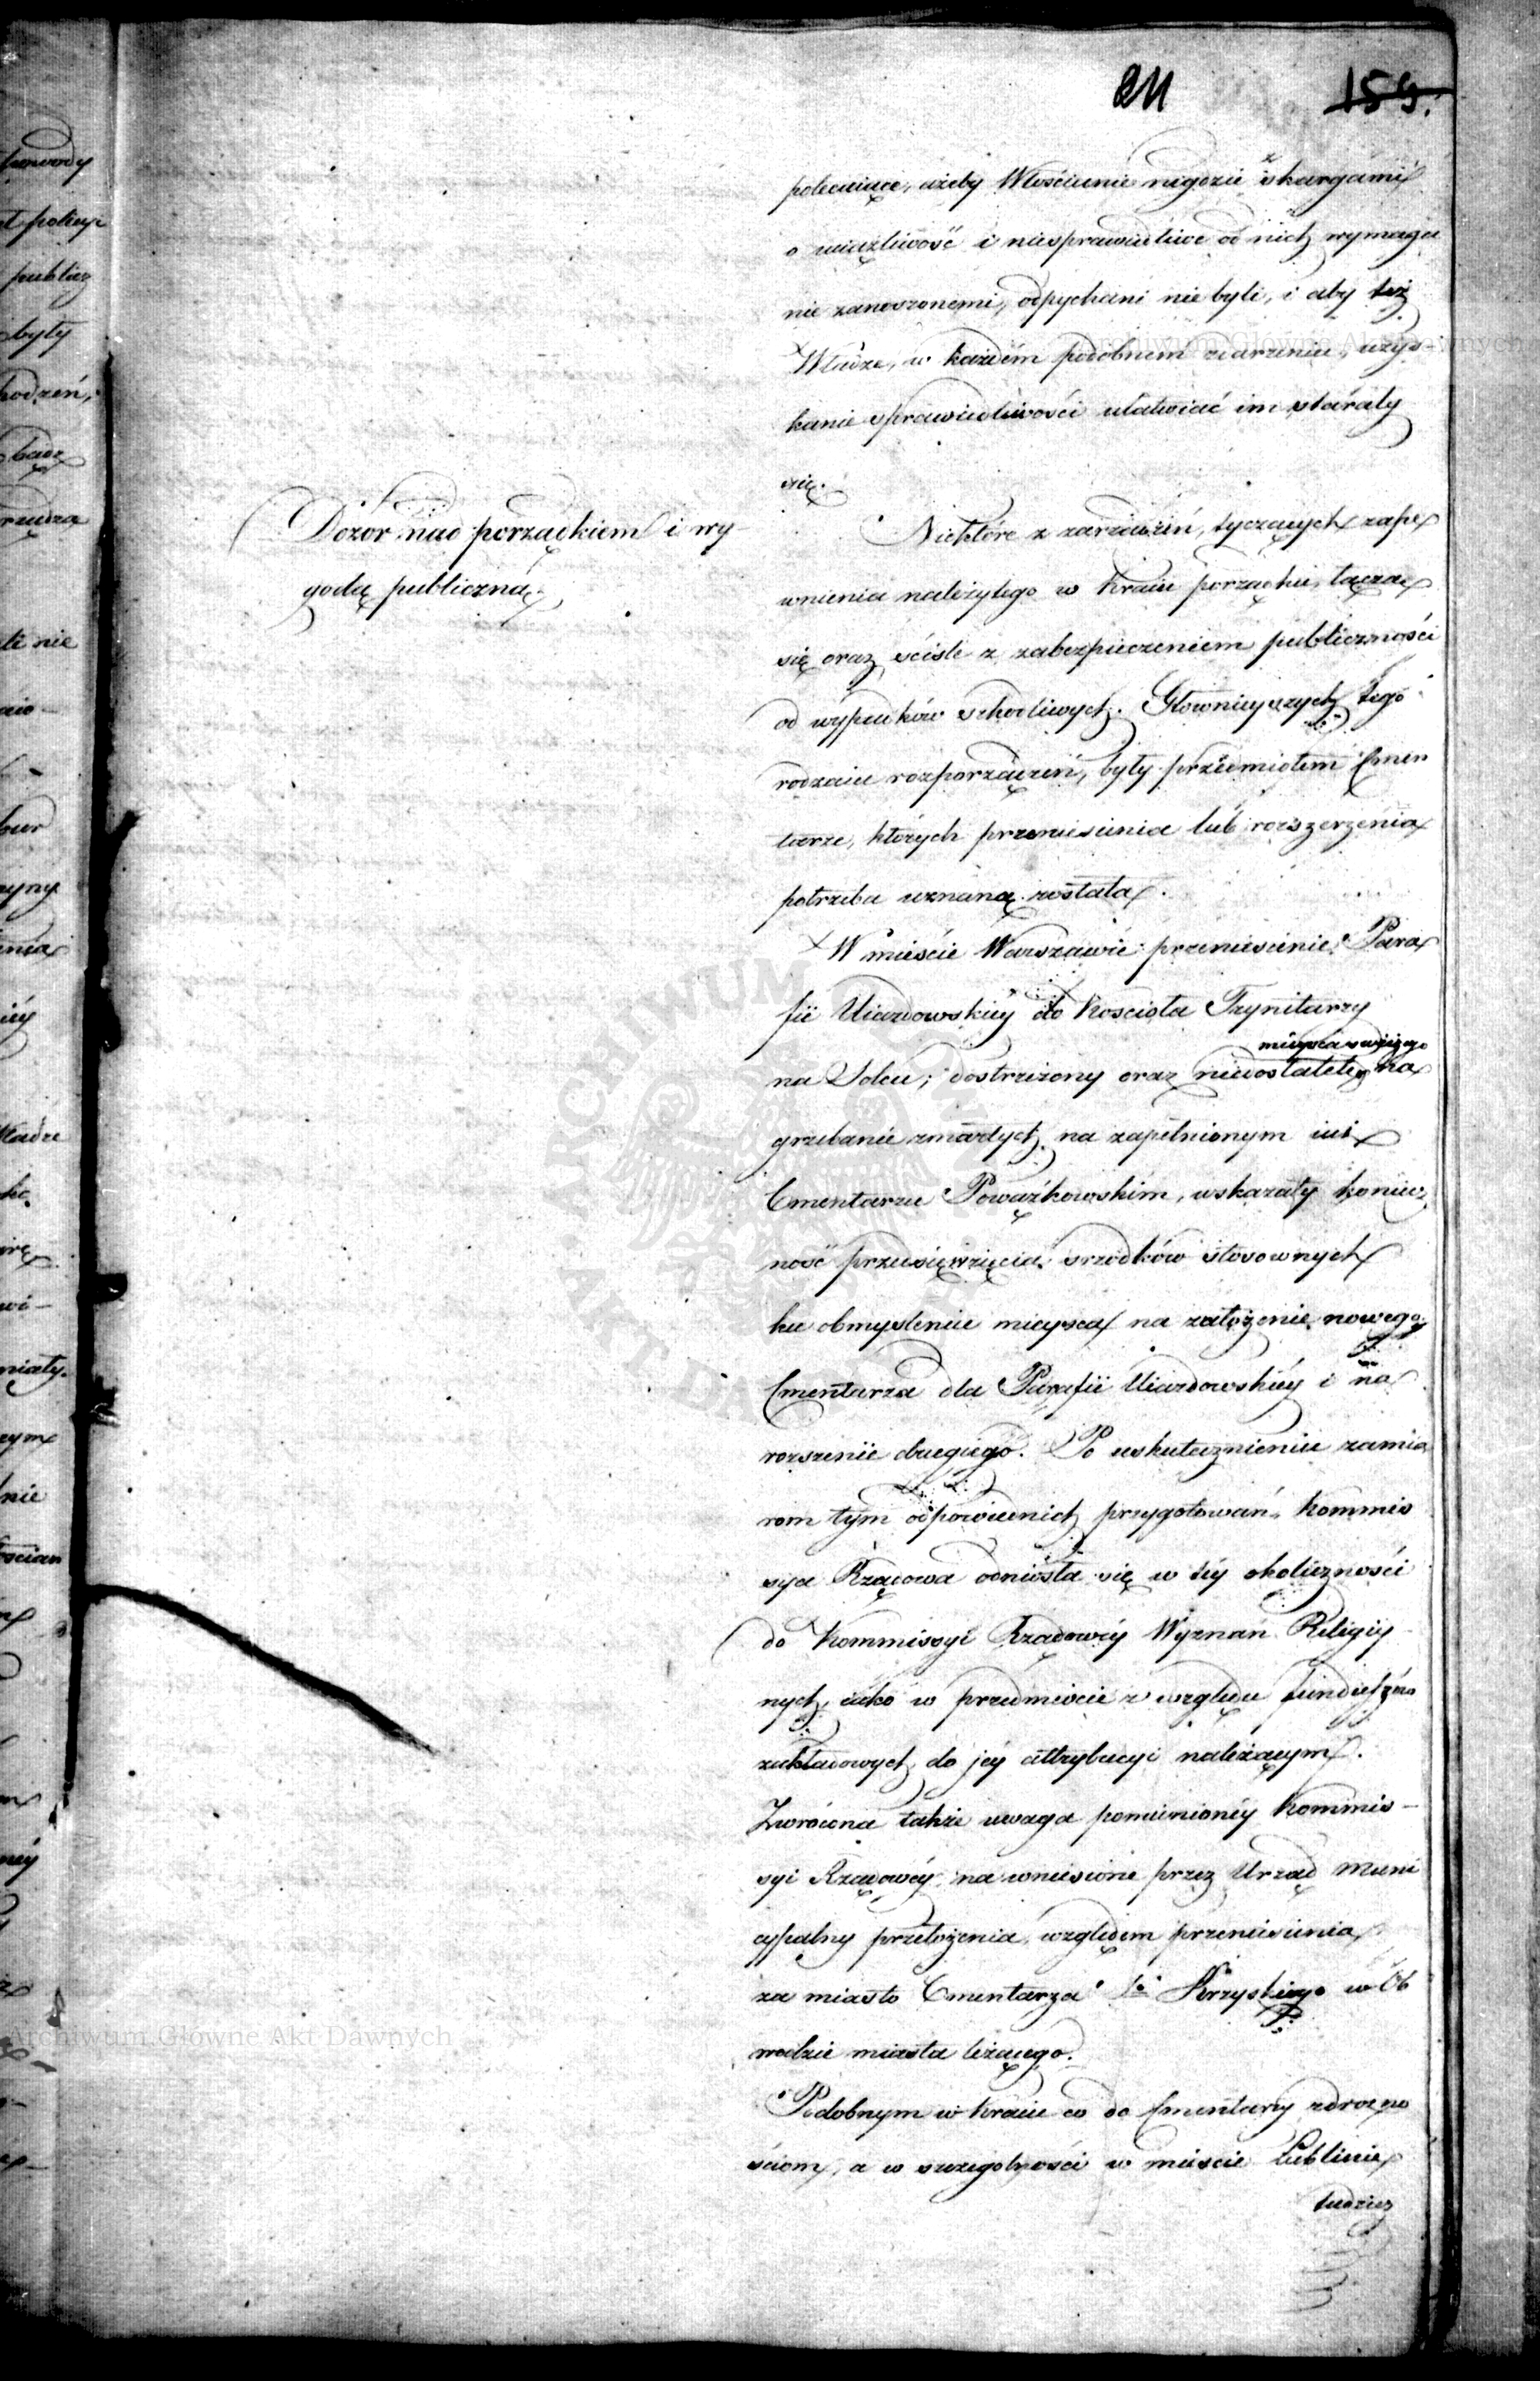 211 159.
polecaiące, ażeby Włościanie nigdzie z skargami
o uciążliwość i niesprawiedliwe od nich wymaga
nie zanoszonemi, odpychani nie byli, i aby też
Władze, w każdém podobnem zdarzeniu, uzys-
kanie sprawiedliwości ułatwiać im starały
się.
Dozor nad porządkiem i wy
godą publiczną.
Niektóre z zarządzeń, tyczących zape
wnienia należytego w Kraiu porządku, łączą
się oraz ściśle z zabezpieczeniem publiczności
od wypadków szkodliwych. Głownieyszych tego
rodzaiu rozporządzeń, były przedmiotem Cmen
tarze, których przeniesienia lub rozszerzenia
potrzeba uznaną została.
W mieście Warszawie przeniesienie Para
fii Uiazdowskiéy do Kościoła Trynitarzy
na Solcu; dostrzeżony oraz niedostatek miejsca swieżego na
grzebanie zmarłych na zapełnionym iuż
Cmentarzu Powązkowskim, wskazały koniecz
ność przedsięwzięcia srzodków stosownych
ku obmyśleniu mieysca na założenie nowego
Cmentarza dla Parafii Uiazdowskiéy i na
rozszenie drugiego. Po uskutecznieniu zamia
rom tym odpowiednich przygotowań, Kommis
sya Rządowa odniosła się w téy okoliczności
do Kommissyi Rządowéy Wyznań Religiy
nych, iako w przedmiocie z względu funduszów
zakładowych do jéy attrybucyi należącym.
Zwrócona także uwaga pomienionéy Kommis-
syi Rządowéy na wniesione przez Urząd Muni
cypalny przełożenia, względem przeniesienia
za miasto Cmentarza Sto Krzyskiego w Ob
wodzie miasta leżącego.
Podobnym w Kraiu co do Cmentarzy zdrożno
ściom, a w szczególności w mieście Lublinie
tudzież
Archiwum Główne Akt Dawnych
Archiwum Główne Akt Dawnych